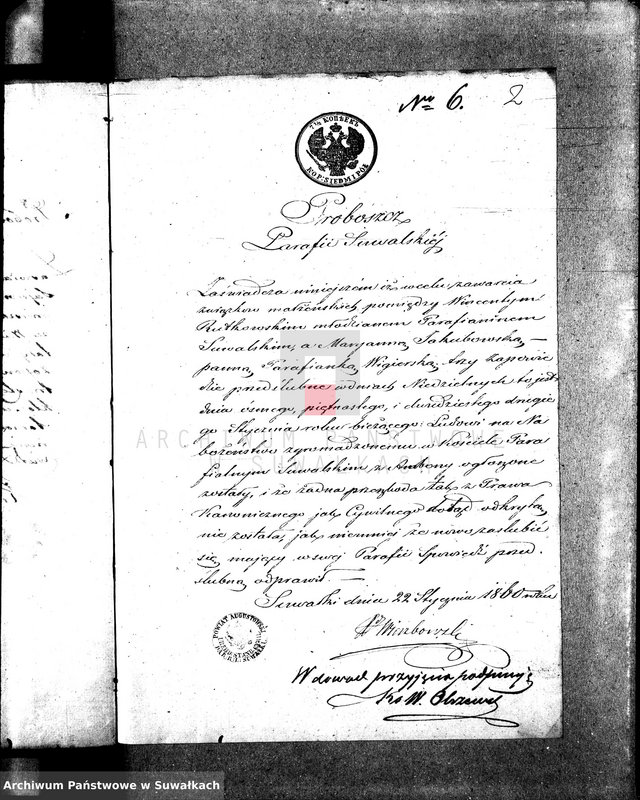 № 6. 2
7½ КОПѢЕКЪ
KOP: SIEDM I PÓŁ
Proboszcz
Parafii Suwalskiéj
Zaświadcza niniejszém iż w celu zawarcia
związków małżeńskich pomiędzy Wincentym
Rutkowskim młodzianem Parafianinem
Suwalskim, a Maryanną Jakubowską —
panną Parafianką Wigierską, trzy zapowie
dzie przedślubne w dniach Niedzielnych to jest
dnia ósmego, piętnastego, i dwudziestego drugie
go Stycznia roku bieżącego: Ludowi na Na
bożeństwo zgromadzonemu w Kościele Para
fialnym Suwalskim z Ambony ogłoszone
zostały, i że żadna przeszkoda tak z Prawa
Kanonicznego jak Cywilnego dotąd odkrytą
nie została, jak niemniej że nowo zaślubić
się mający w swej Parafii Spowiedź przed
ślubną odprawił. —
Suwałki dnia 22 Stycznia 1860 roku
W dowód przyjęcia podpisuję
POWIAT AUGUSTOWSKI
ARCHIWUM PAŃSTWOWE
W SUWAŁKACH
Archiwum Państwowe w Suwałkach